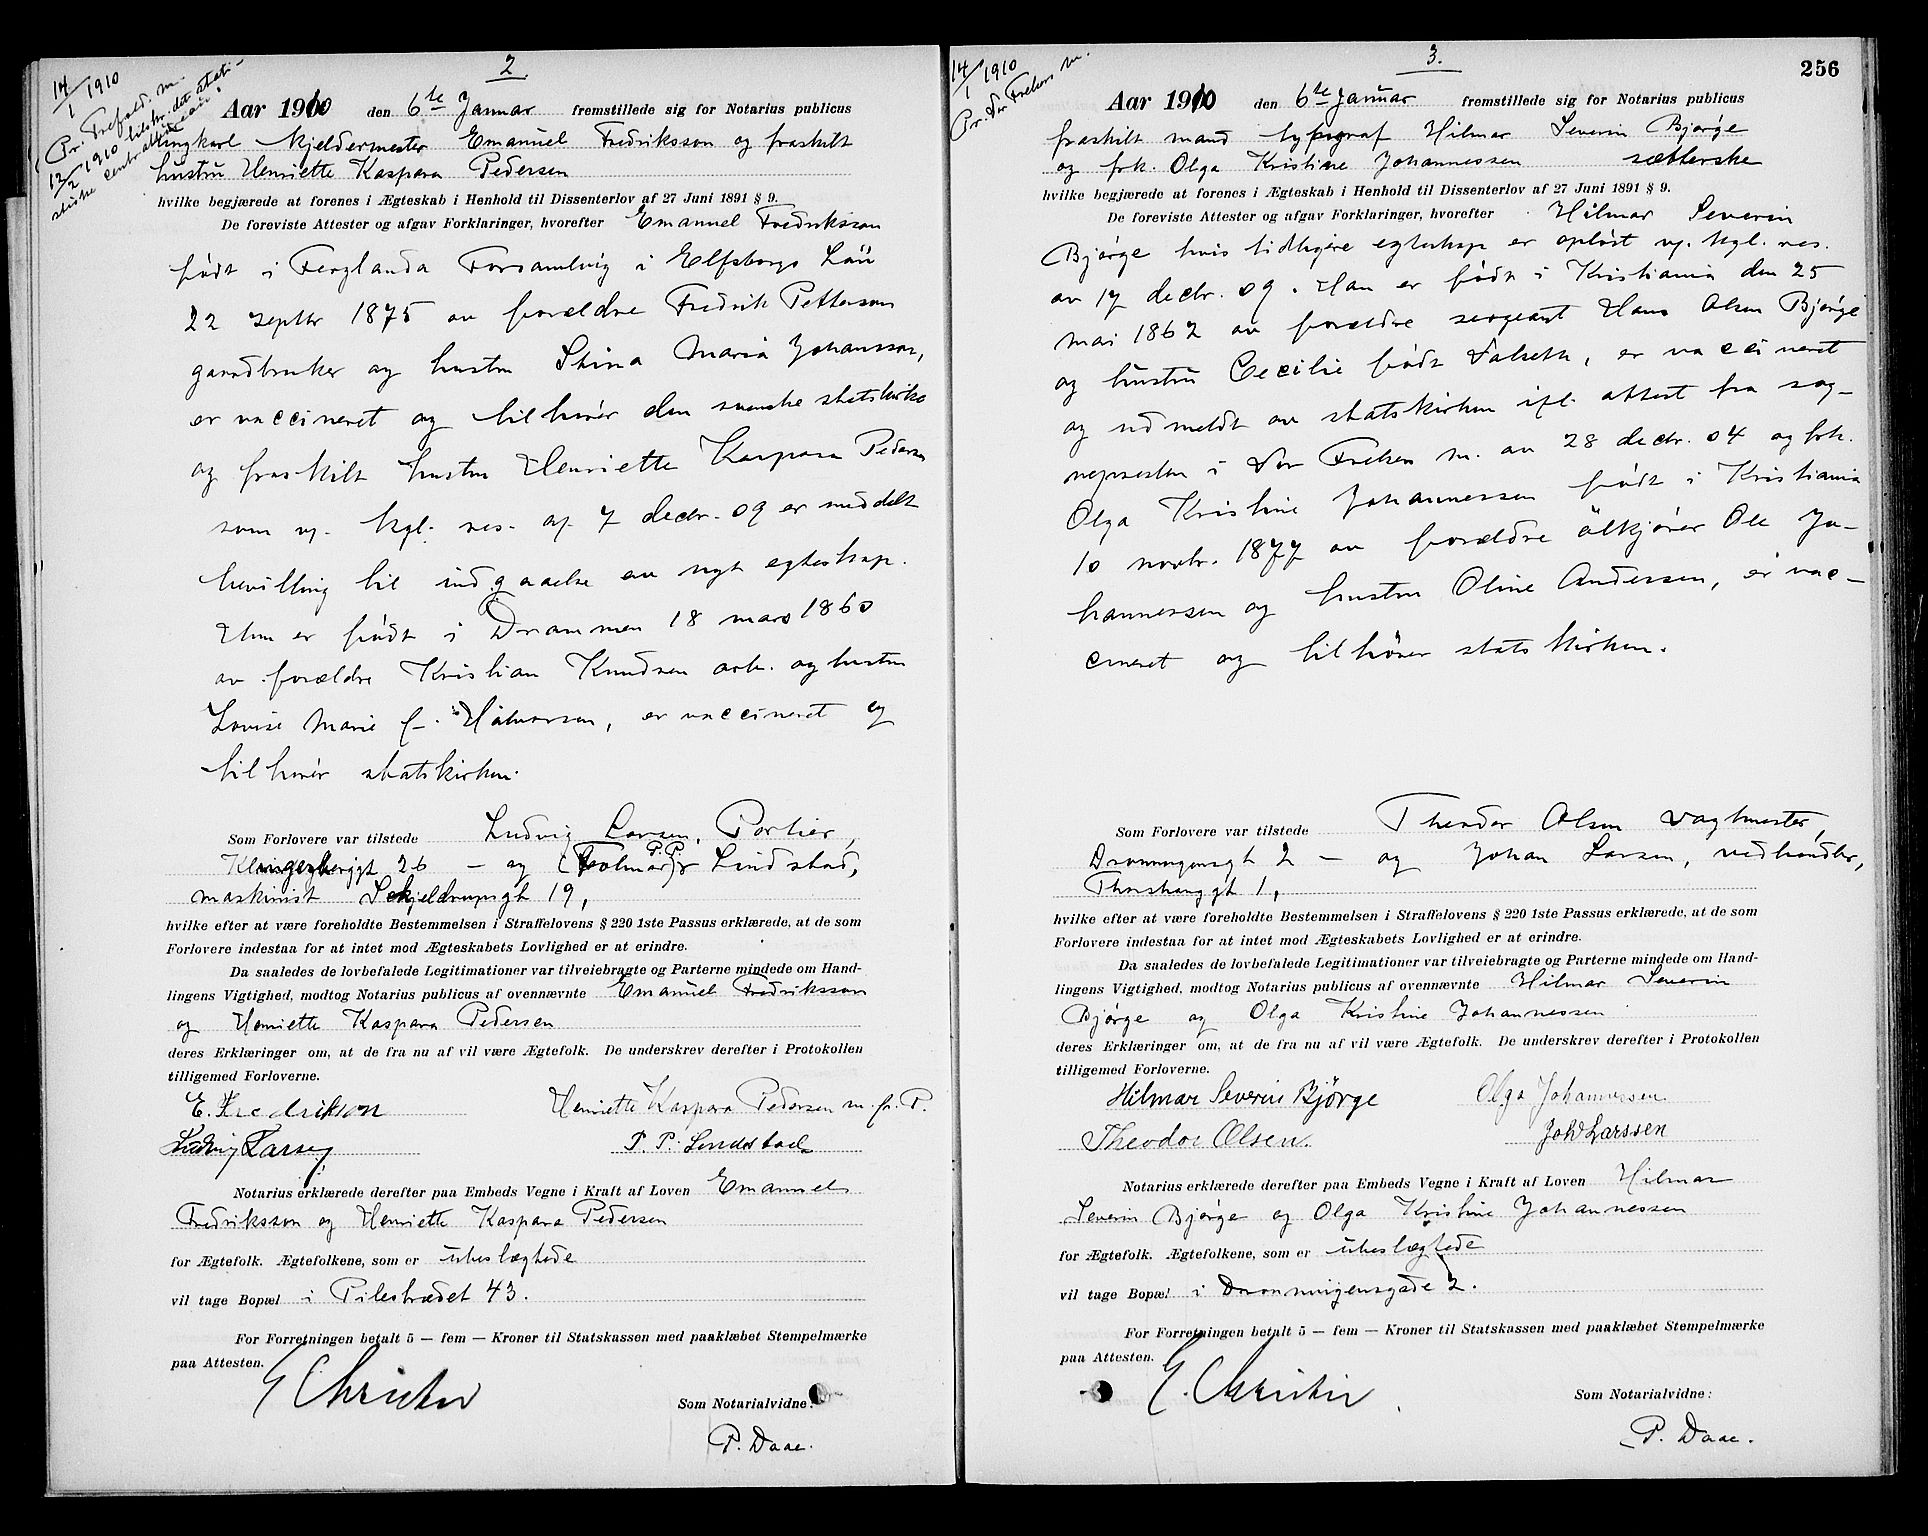 2
14/1 1910
Pr. Trefold. m.
12/2 1910 tilskr. det stati-
stiske centralbureau.
Aar 1910 den 6te Januar fremstillede sig for Notarius publicus
ungkarl kjeldermester Emanuel Fredriksson og fraskilt
hustru Henriette Kaspara Pedersen
hvilke begjærede at forenes i Ægteskab i Henhold til Dissenterlov af 27 Juni 1891 § 9.
De foreviste Attester og afgav Forklaringer, hvorefter Emanuel Fredriksson
født i Ferglanda Forsamling i Elfsborgs Län
22 septbr 1875 av forældre Fredrik Petterson
gaardbruker og hustru Stina Maria Johansson,
er vaccineret og tilhører den svenske statskirke
og fraskilt hustru Henriette Kaspara Pedersen
som v. kgl. res. af 7 decbr. 09 er meddelt
bevilling til indgaaelse av nyt egteskap.
Hun er født i Drammen 18 mars 1860
av forældre Kristian Knudsen arb. og hustru
Lovise Marie f. Halvorsen, er vaccineret og
tilhører statskirken.
Som Forlovere var tilstede Ludvig Larsen, Portier,
Klingenberggt 26 — og P. P. Lindstad,
maskinist Schjeldrupsgt 19,
hvilke efter at være foreholdte Bestemmelsen i Straffelovens § 220 1ste Passus erklærede, at de som
Forlovere indestaa for at intet mod Ægteskabets Lovlighed er at erindre.
Da saaledes de lovbefalede Legitimationer var tilveiebragte og Parterne mindede om Hand-
lingens Vigtighed, modtog Notarius publicus af ovennævnte Emanuel Fredriksson
og Henriette Kaspara Pedersen
deres Erklæringer om, at de fra nu af vil være Ægtefolk. De underskrev derefter i Protokollen
tilligemed Forloverne.
E. Fredrikson Henriette Kaspara Pedersen m. fr. P.
Ludvig Larsen P. P. Lindstad
Notarius erklærede derefter paa Embeds Vegne i Kraft af Loven Emanuel
Fredriksson og Henriette Kaspara Pedersen
for Ægtefolk. Ægtefolkene, som er ubeslægtede
vil tage Bopæl i Pilestrædet 43.
For Forretningen betalt 5 — fem — Kroner til Statskassen med paaklæbet Stempelmærke
paa Attesten.
E Christie
Som Notarialvidne:
P. Daae.
3.
256
14/1 1910
Pr. Vor Frelsers m.
Aar 1910 den 6te Januar fremstillede sig for Notarius publicus
fraskilt mand typograf Hilmar Severin Bjørge
og frk. Olga Kristine Johannessen sætterske
hvilke begjærede at forenes i Ægteskab i Henhold til Dissenterlov af 27 Juni 1891 § 9.
De foreviste Attester og afgav Forklaringer, hvorefter Hilmar Severin
Bjørge hvis tidligere egteskap er opløst v. kgl. res.
av 17 decbr. 09. Han er født i Kristiania den 25
mai 1862 av forældre sergeant Hans Olsen Bjørge
og hustru Cecilie født Falseth, er vaccineret
og udmeldt av statskirken ifl. attest fra sog-
nepresten i Vor Frelsers m. av 28 decbr. 04 og frk.
Olga Kristine Johannessen født i Kristiania
10 novbr. 1877 av forældre ølkjører Ole Jo-
hannessen og hustru Oline Andersen, er vac-
cineret og tilhører statskirken.
Som Forlovere var tilstede Theodor Olsen vagtmester,
Dronningensgt 2 — og Johan Larsen, vedhandler,
Thorshauggt 1,
hvilke efter at være foreholdte Bestemmelsen i Straffelovens § 220 1ste Passus erklærede, at de som
Forlovere indestaa for at intet mod Ægteskabets Lovlighed er at erindre.
Da saaledes de lovbefalede Legitimationer var tilveiebragte og Parterne mindede om Hand-
lingens Vigtighed, modtog Notarius publicus af ovennævnte Hilmar Severin
Bjørge og Olga Kristine Johannessen
deres Erklæringer om, at de fra nu af vil være Ægtefolk. De underskrev derefter i Protokollen
tilligemed Forloverne.
Hilmar Severin Bjørge Olga Johannessen.
Theodor Olsen. Joh Larssen
Notarius erklærede derefter paa Embeds Vegne i Kraft af Loven Hilmar
Severin Bjørge og Olga Kristine Johannessen
for Ægtefolk. Ægtefolkene, som er ubeslægtede
vil tage Bopæl i Dronningensgade 2.
For Forretningen betalt 5 — fem — Kroner til Statskassen med paaklæbet Stempelmærke
paa Attesten.
E. Christie
Som Notarialvidne:
P. Daae.